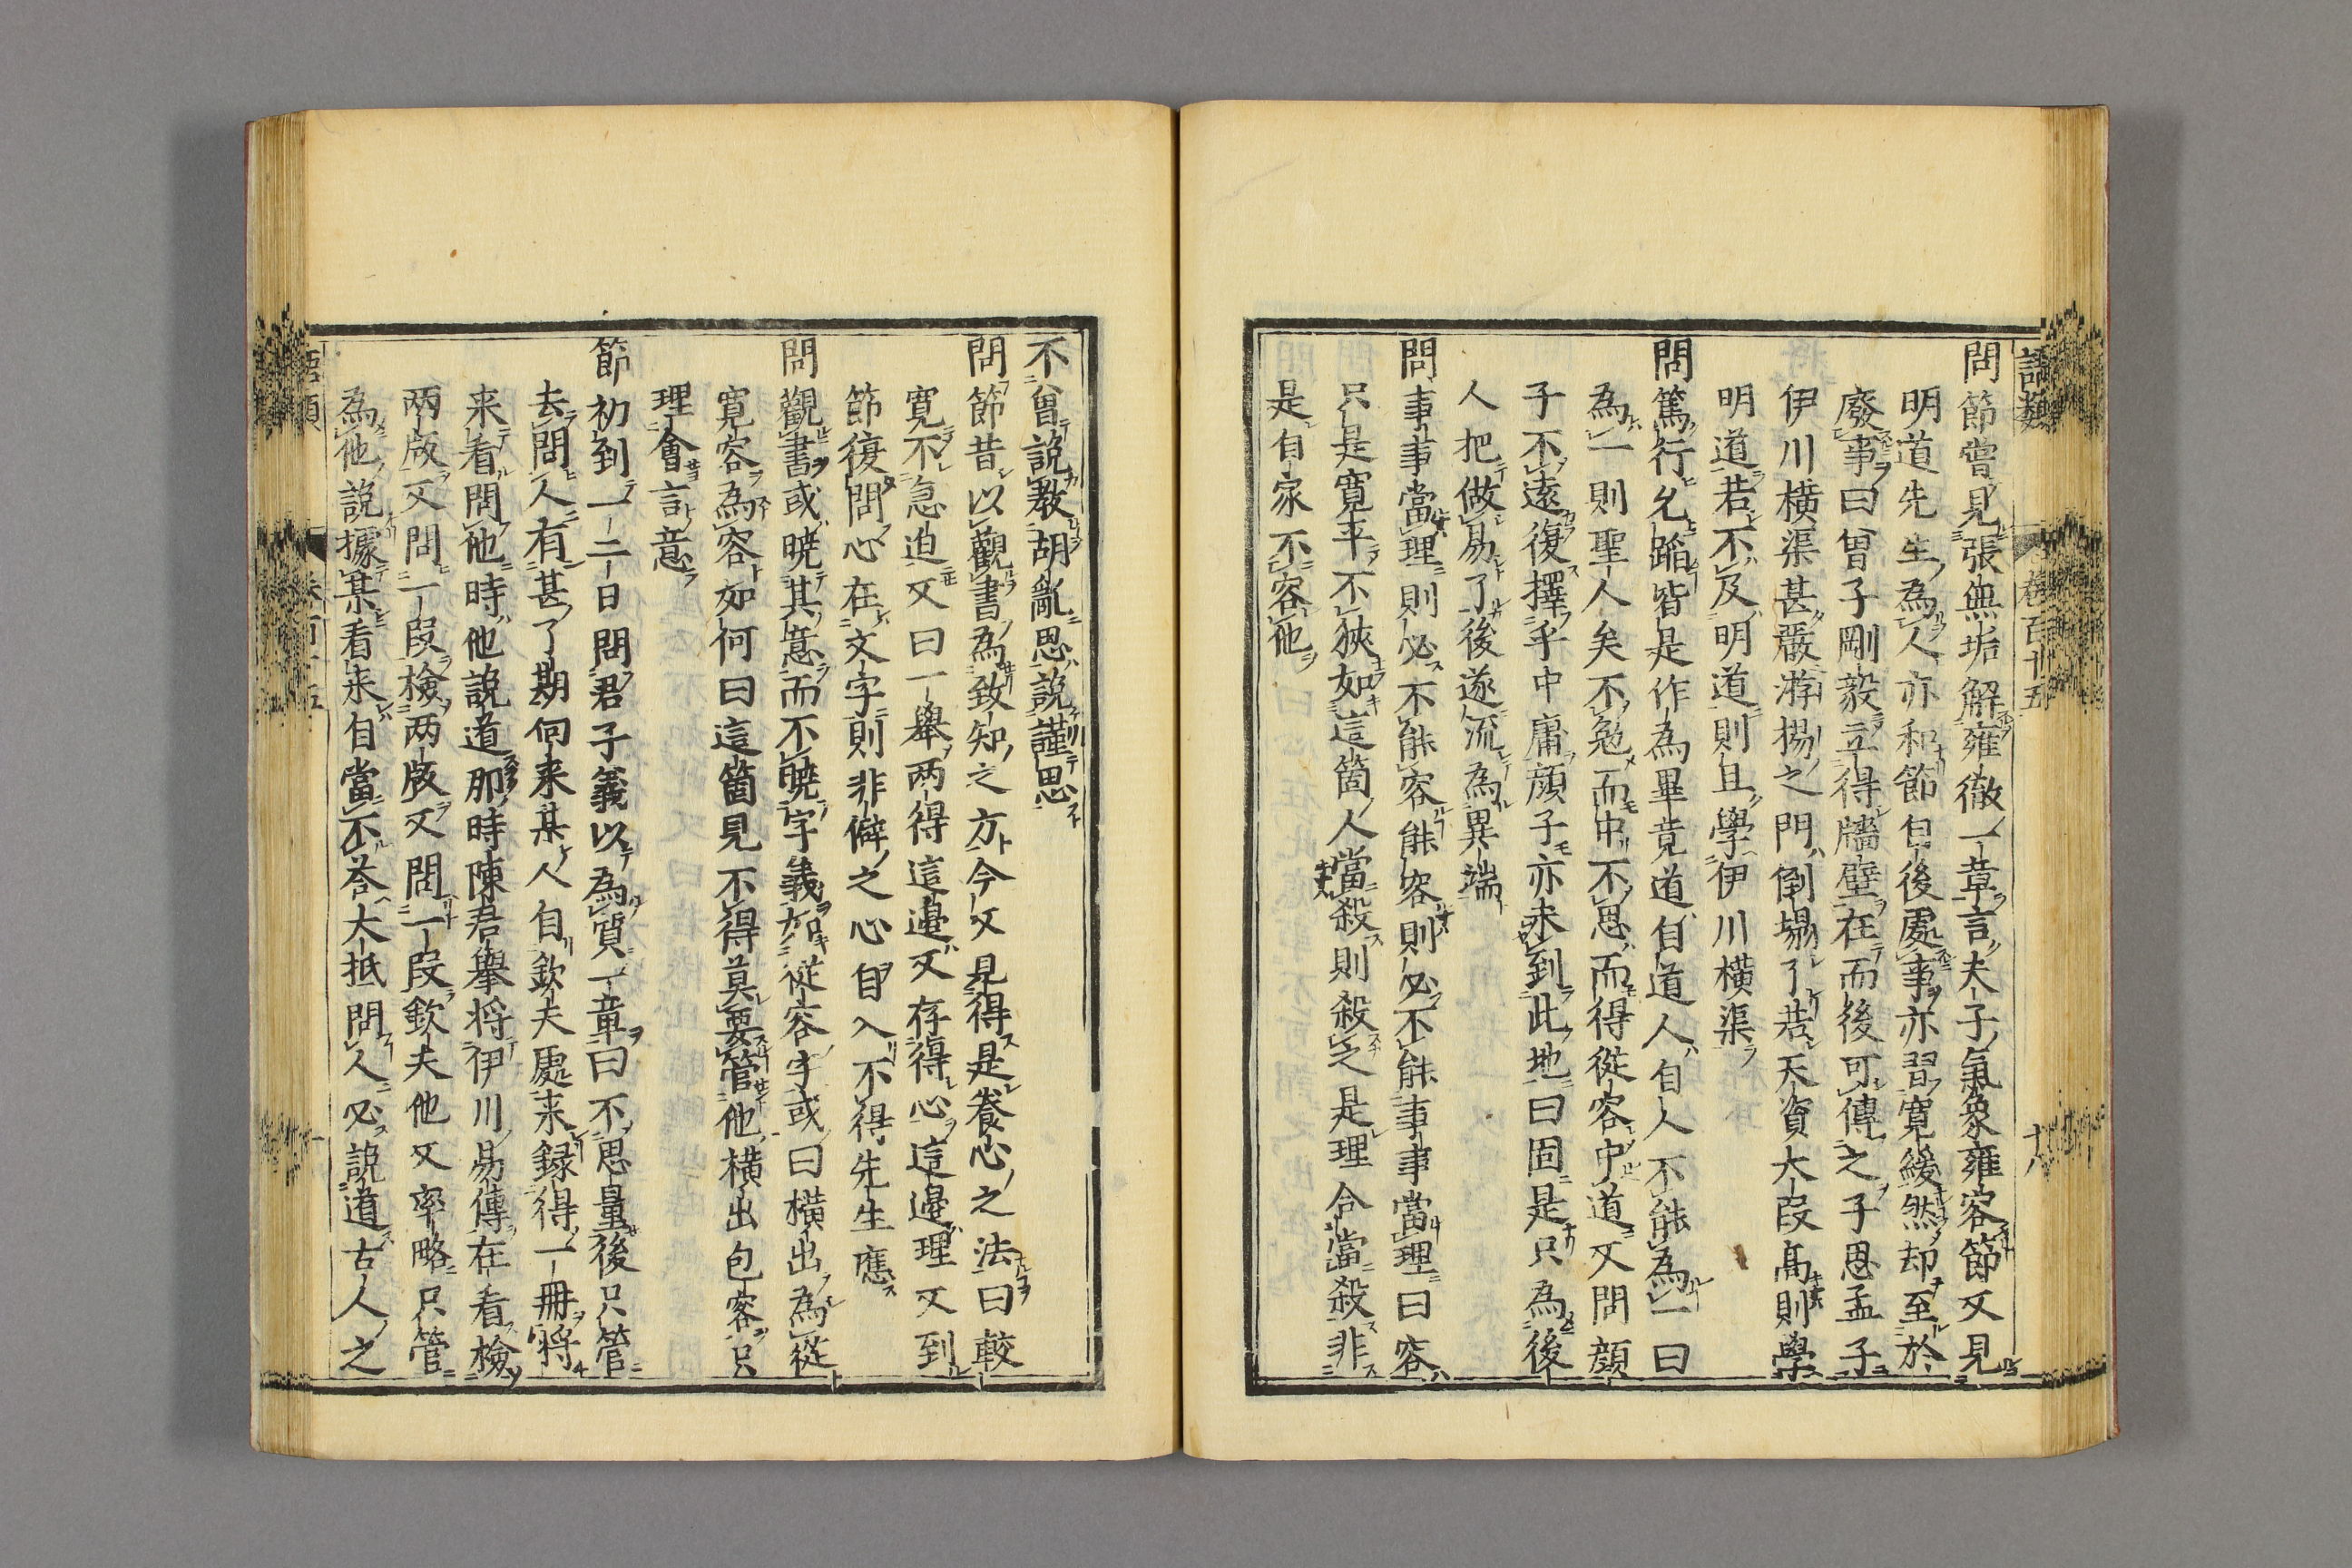 語類 卷百十五 十八
問節嘗見張無垢解雍徹一章言夫子氣象雍容節又見
明道先生為人亦和節自後處事亦習寛緩然却至於
廢事曰曾子剛毅立得牆壁在而後可傳之子思孟子
伊川橫渠甚嚴游楊之門倒塌了若天資大段高則學
明道若不及明道則且學伊川橫渠
問篤行允蹈皆是作為畢竟道自道人自人不能為一曰
為一則聖人矣不勉而中不思而得從容中道又問顔
子不遠復擇乎中庸顔子亦未到此地曰固是只為後
人把做易了後遂流為異端
問事事當理則必不能容能容則必不能事事當理曰容
只是寛平不狹如這箇人當殺則殺之是理合當殺非
是自家不容他
不曾說教胡亂思說謹思
問節昔以觀書為致知之方今又見得是養心之法曰較
寛不急迫又曰一舉两得這邊又存得心這邊理又到
節復問心在文字則非僻之心自入不得先生應
問觀書或曉其意而不曉字義如從容字或曰橫出為從
寛容為容如何曰這箇見不得莫要管他橫出包容只
理會言意
節初到一二日問君子義以為質一章曰不思量後只管
去問人有甚了期向来某人自欽夫處来録得一冊将
来看問他時他說道那時陳君舉将伊川易傳在看檢
两版又問一段檢两版又問一段欽夫他又率略只管
為他說據某看来自當不荅大抵問人必說道古人之